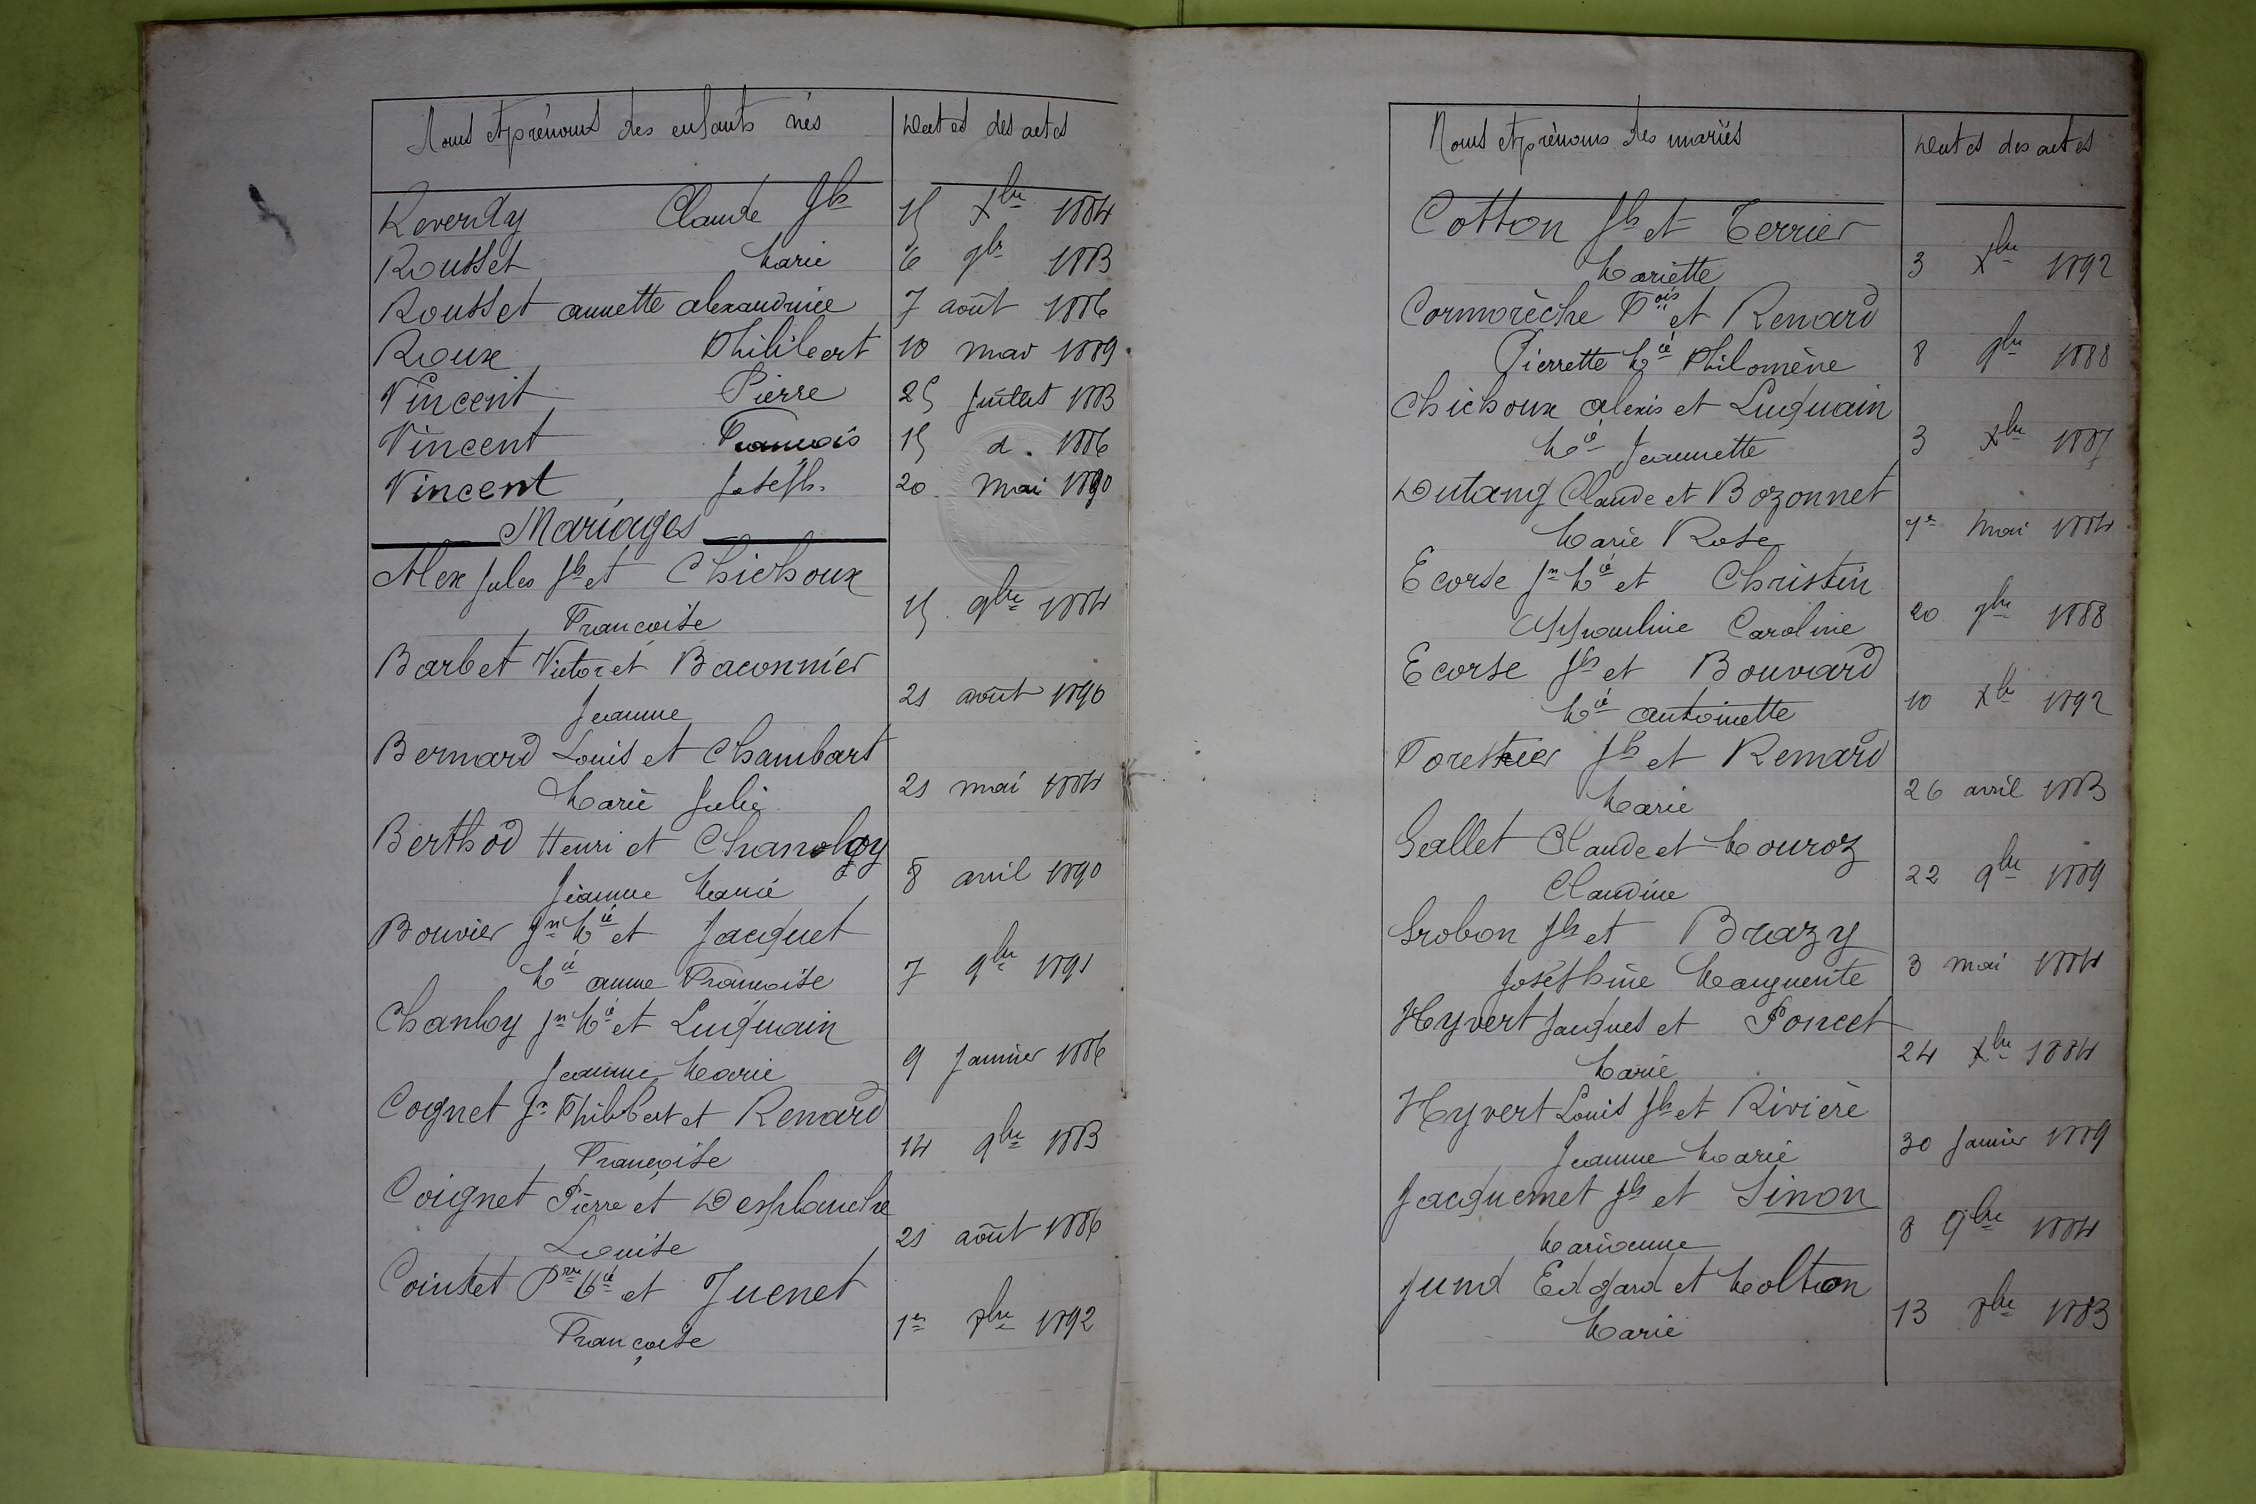 Noms et prénoms des enfants nés Dates des actes
Reverdy Claude Jh 15 Xbre 1884
Rousset Marie 6 9br 1883
Rousset annette alexandrine 7 août 1886
Roux Philibert 10 mar 1889
Vincent Pierre 25 Juillet 1883
Vincent François 15 d. 1886
Vincent Joseph. 20 Mai 1890
Mariages
Alex Jules Jh et Chichoux
Françoise 15 9bre 1884
Barbet Victor et Baconnier
Jeanne 21 août 1890
Bernard Louis et Chambart
Marie Julie 21 mai 1884
Berthod Henri et Chanloy
Jeanne Marie 8 avril 1890
Bouvier Jn Mie et Jacquet
Mie anne Françoise 7 9bre 1891
Chanloy Jn Mie et Luiquain
Jeanne Marie 9 Janvier 1886
Cognet Jn Philibert et Renard
Françoise 14 9bre 1883
Coignet Pierre et Desplanche
Louise 21 août 1886
Cointet Pre Mie et Juenet
Françoise 1er 7bre 1892
Noms et prénoms des mariés Dates des actes
Cotton Jh et Terrier
Mariette 3 Xbre 1892
Cormorèche Fois et Renard
Pierrette Mie Philomène 8 9bre 1888
Chichoux Alexis et Luiquain
Mie Jeannette 3 Xbre 1887
Dutang Claude et Bozonnet
Marie Rose 1er Mai 1884
Ecorse Jn Mie et Christin
Caroline 20 9bre 1888
Ecorse Jh et Bouvard
Mie antoinette 10 Xbre 1892
Forestier Jh et Renard
Marie 26 avril 1883
Gallet Claude et Mouroz
Claudine 22 9bre 1889
Grobon Jh et Brazy
Joséphine Marguerite 3 Mai 1884
Hyvert Jacques et Poncet
Marie 24 Xbre 1884
Hyvert Louis Jh et Rivière
Jeanne Marie 30 Janvier 1889
Jacquemet Jh et Sinon
Marianne 8 9bre 1884
Jund Edgard et Molton
Marie 13 8bre 1883